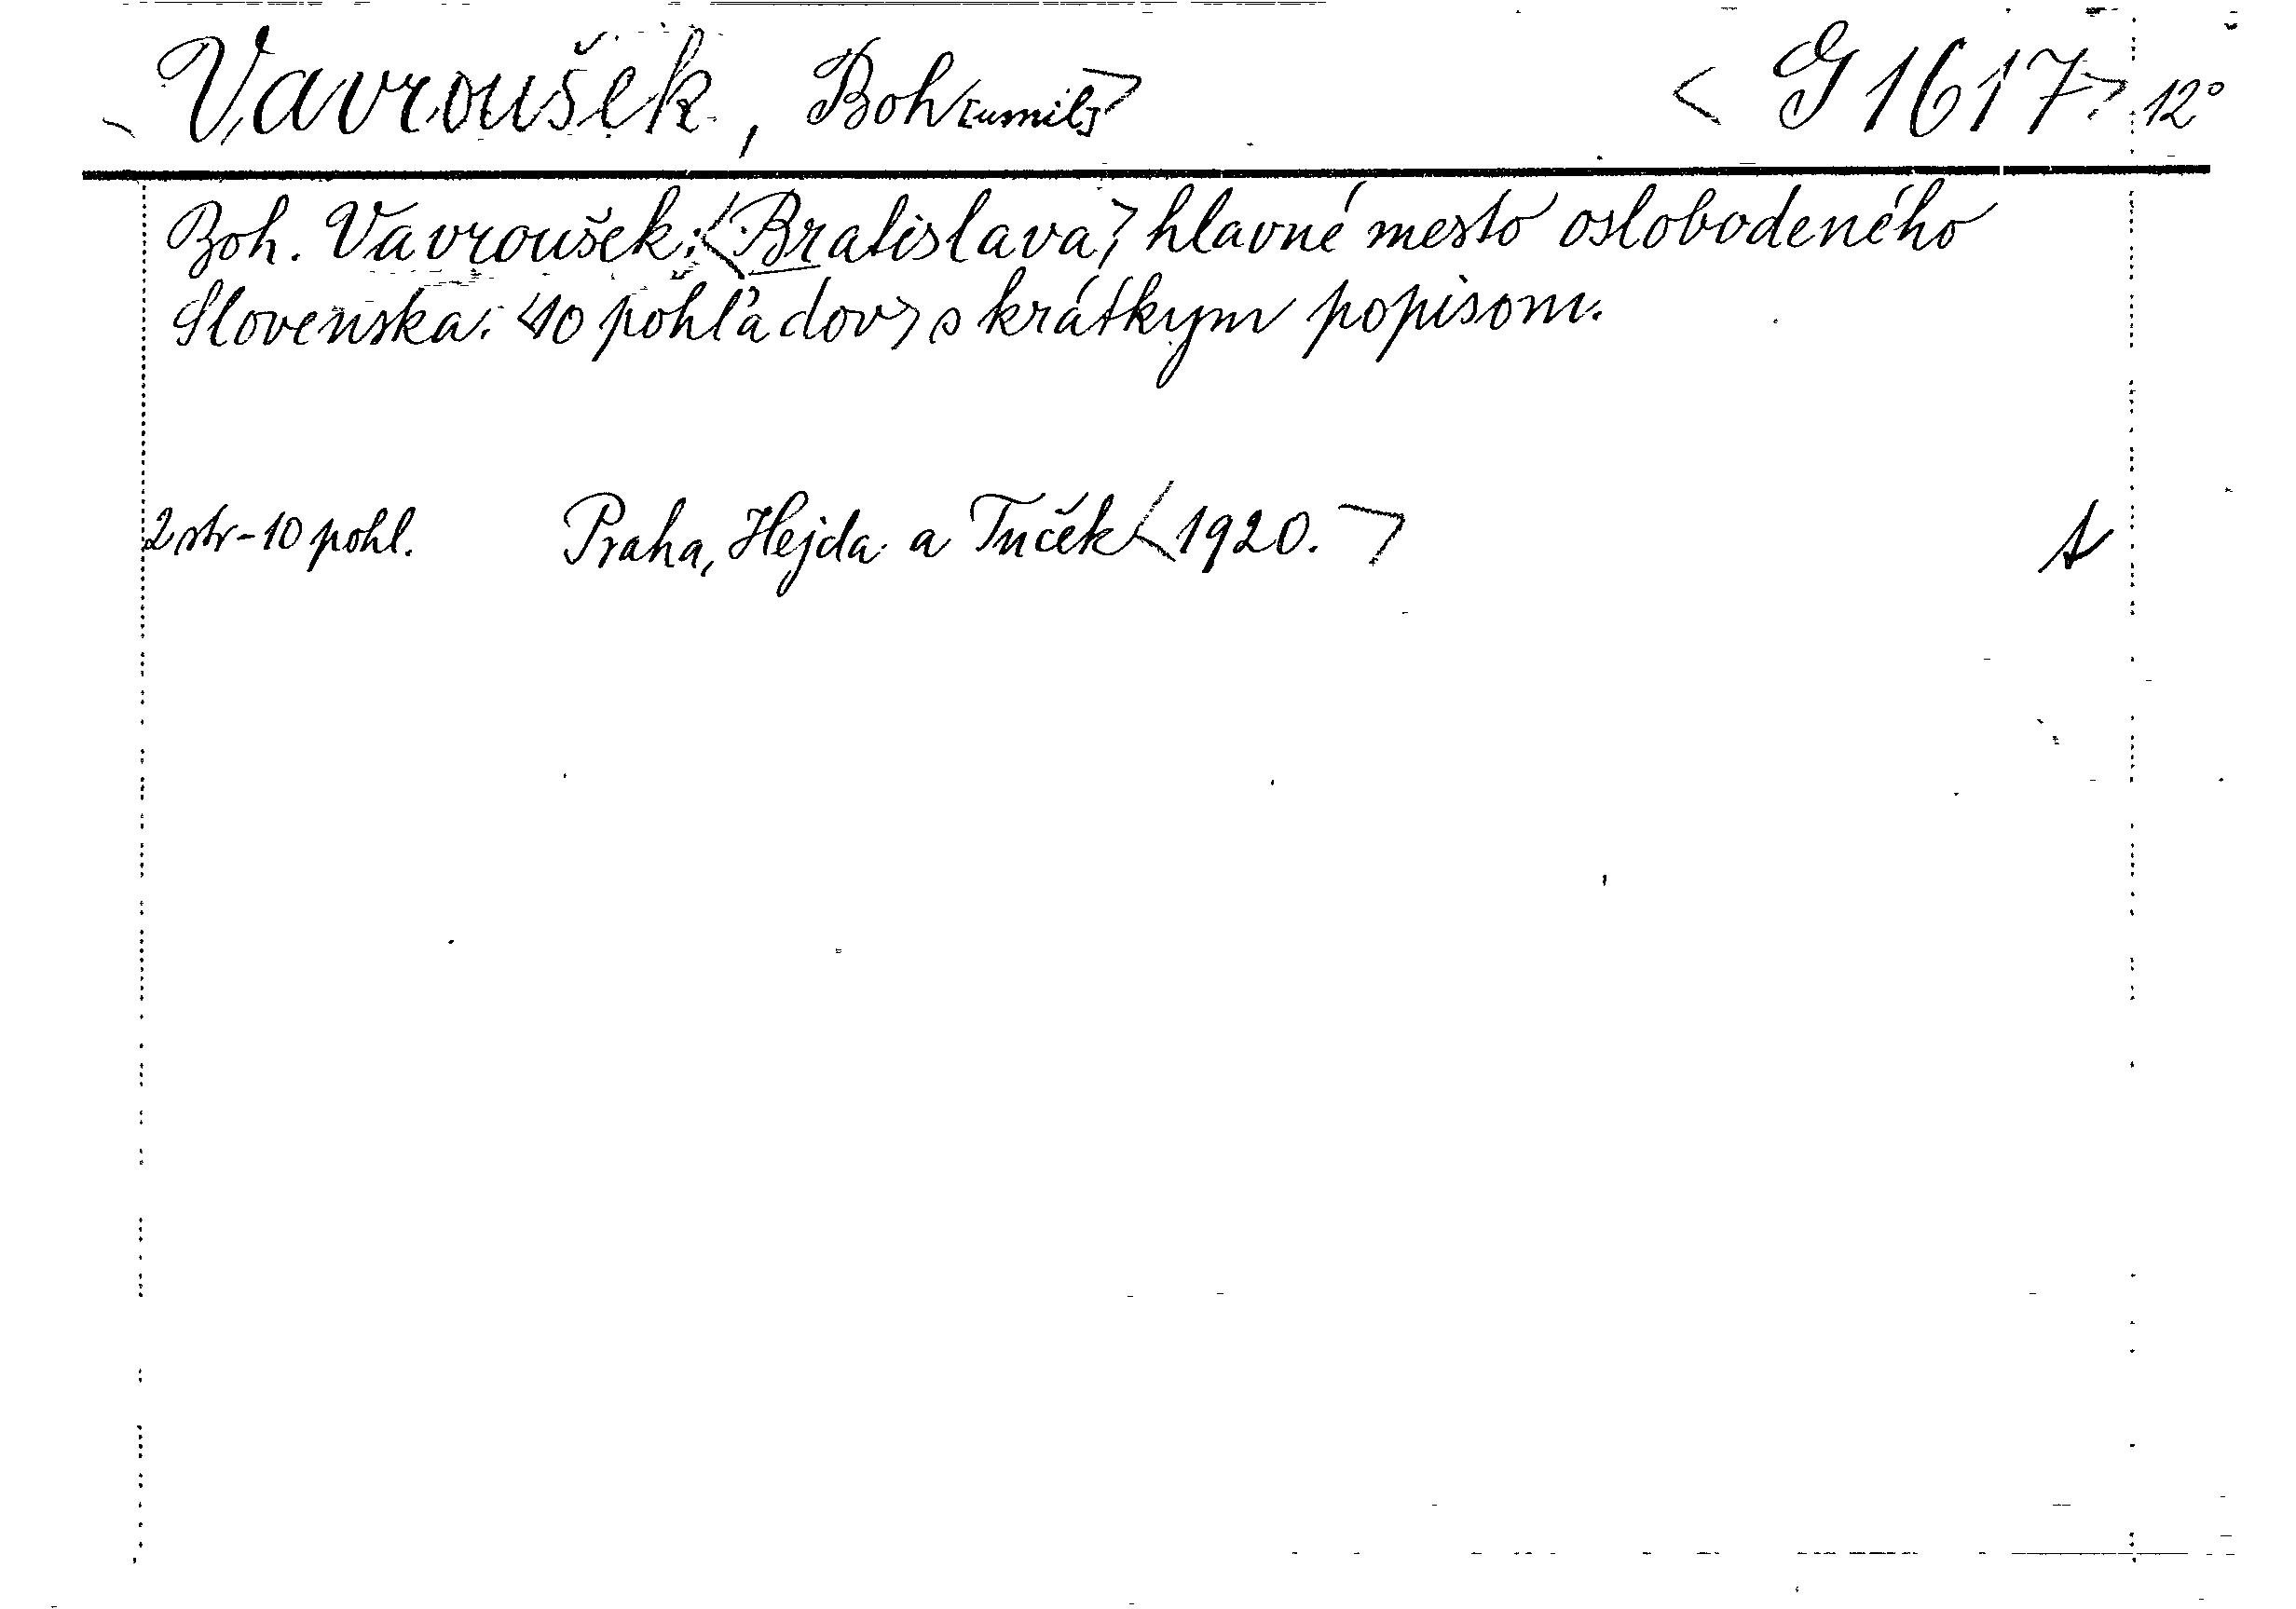 Vavroušek, Boh[umil]> <G 1617> 12°
Boh. Vavroušek: <Bratislava> hlavné mesto oslobodeného
Slovenska. <10 pohľadov> s krátkym popisom.
2 str-10 pohl. Praha, Hejda a Tuček <1920.>